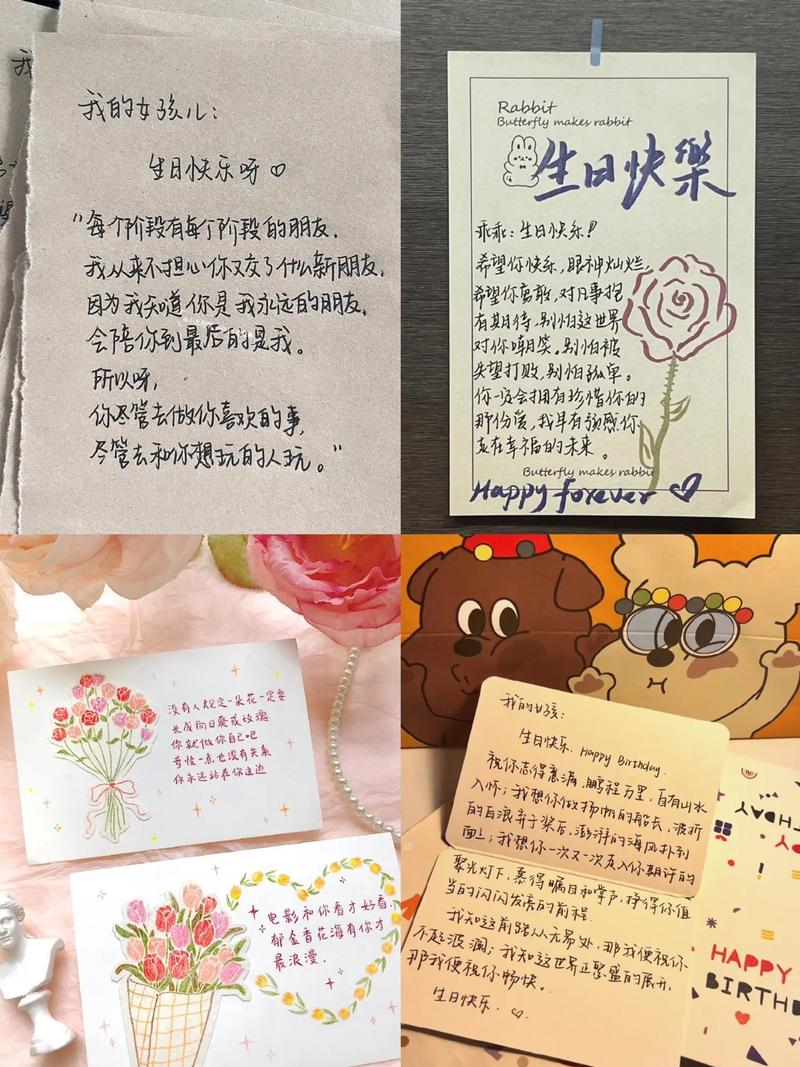 我的女孩儿:
生日快乐呀♡
"每个阶段有每个阶段的朋友,
我从来不担心你又交了什么新朋友,
因为我知道你是我永远的朋友,
会陪你到最后的是我。
所以呀,
你尽管去做你喜欢的事,
尽管去和你想玩的人玩。"
Rabbit
Butterfly makes rabbit
生日快樂
乖乖:生日快乐!
希望你快乐,眼神灿烂,
希望你勇敢,对凡事抱
有期待,别怕这世界
对你嘲笑。别怕被
失望打败,别怕孤单。
你一定会拥有珍惜你的
那份爱,我早有预感你
走在幸福的未来。
Butterfly makes rabbit
Happy forever ♡
没有人规定一朵花一定要
长成向日葵或玫瑰
你就做你自己吧
奇怪一点也没有关系
你永远站在你这边
电影和你看才好看
郁金香花海有你才
最浪漫.
我的女孩:
生日快乐. Happy Birthday.
祝你志得意满,鹏程万里,自有山水
入怀;我想你做扬帆的船长,波折
的白浪弃于桨后,澎湃的海风扑到
面上;我想你一次又一次走入你期许的
聚光灯下,赢得瞩目和掌声,挣得你值
当的闪闪发亮的前程.
我知这前路从无易处,那我便祝你
不起波澜;我知这世界正繁盛的展开,
那我便祝你畅快.
生日快乐.♡.
HAPPY
BIRTHD